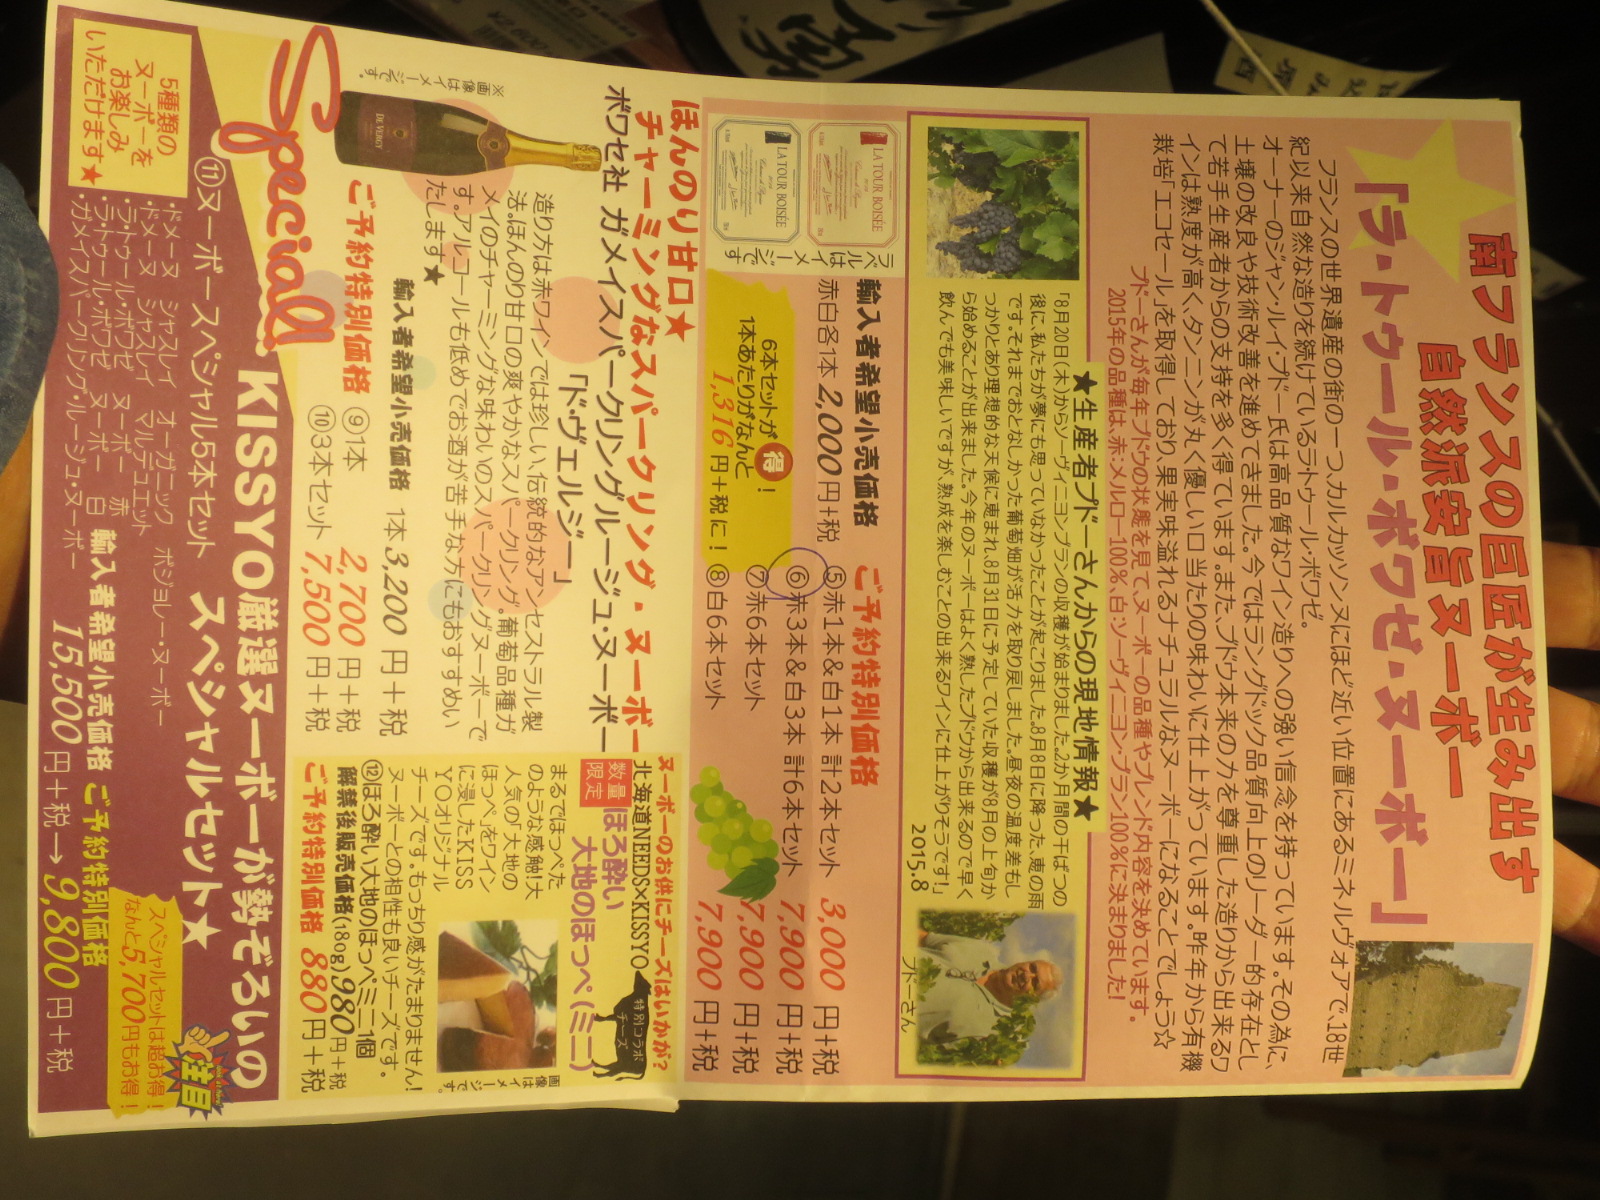 南フランスの巨匠が生み出す
自然派安旨ヌーボー
「ラ・トゥール・ボワゼ・ヌーボー」
フランスの世界遺産の街の一つ、カルカッソンヌにほど近い位置にあるミネルヴォアで、18世
紀以来自然な造りを続けているラ・トゥール・ボワゼ。
オーナーのジャン・ルイ・プドー氏は高品質なワイン造りへの強い信念を持っています。その為に、
土壌の改良や技術改善を進めてきました。今ではラングドック品質向上のリーダー的存在とし
て若手生産者からの支持を多く得ています。また、ブドウ本来の力を尊重した造りから出来るワ
インは熟度が高く、タンニンが丸く優しい口当たりの味わいに仕上がっています。昨年から有機
栽培「エコセール」を取得しており、果実味溢れるナチュラルなヌーボーになることでしょう☆
プドーさんが毎年ブドウの状態を見て、ヌーボーの品種やブレンド内容を決めています。
2015年の品種は、赤:メルロー100%、白:ソーヴィニヨン・ブラン100%に決まりました!
★生産者プドーさんからの現地情報★
「8月20日(木)からソーヴィニヨンブランの収穫が始まりました。2か月間の干ばつの
後に、私たちが夢にも思っていなかったことが起こりました。8月8日に降った、恵の雨
です。それまでおとなしかった葡萄畑が活力を取り戻しました。昼夜の温度差もし
っかりとあり理想的な天候に恵まれ、8月31日に予定していた収穫が8月の上旬か
ら始めることが出来ました。今年のヌーボーはよく熟したブドウから出来るので早く
飲んでも美味しいですが、熟成を楽しむことの出来るワインに仕上がりそうです!」
2015,8
プドーさん
LA TOUR BOISÉE
LA TOUR BOISÉE
ラベルはイメージです
輸入者希望小売価格
赤白各1本 2,000円+税
6本セットが得!
1本あたりがなんと
1,316円+税に!
ご予約特別価格
⑤赤1本&白1本 計2本セット 3,000円+税
⑥赤3本&白3本 計6本セット 7,900円+税
⑦赤6本セット 7,900円+税
⑧白6本セット 7,900円+税
ほんのり甘口★
チャーミングなスパークリング・ヌーボー
ボワセ社 ガメイスパークリングルージュ・ヌーボー
「ド・ヴェルジー」
※画像はイメージです。
DE VERGY
造り方は赤ワインでは珍しい、伝統的なアンセストラル製
法。ほんのり甘口の爽やかなスパークリング。葡萄品種ガ
メイのチャーミングな味わいのスパークリングヌーボーで
す。アルコールも低めでお酒が苦手な方にもおすすめい
たします★
輸入者希望小売価格 1本3,200円+税
ご予約特別価格
⑨1本 2,700円+税
⑩3本セット 7,500円+税
ヌーボーのお供にチーズはいかが?
北海道NEEDS×KISSYO
特別コラボ
チーズ
数量
限定
ほろ酔い
大地のほっぺ(ミニ)
まるでほっぺた
のような感触!大
人気の「大地の
ほっぺ」をワイン
に浸したKISS
YOオリジナル
チーズです。もっちり感がたまりません!
ヌーボーとの相性も良いチーズです。
画像はイメージです。
⑫ほろ酔い大地のほっぺミニ1個
解禁後販売価格(180g)980円+税
ご予約特別価格 880円+税
Special!
KISSYO厳選ヌーボーが勢ぞろいの
スペシャルセット★
注目
⑪ヌーボースペシャル5本セット
5種類の
ヌーボーを
お楽しみ
いただけます★
・ドメーヌ シャスレイ オーガニック ボジョレー・ヌーボー
・ドメーヌ シャスレイ マルデュエット
・ラ・トゥール・ボワゼ ヌーボー 赤
・ラ・トゥール・ボワゼ ヌーボー 白
・ガメイスパークリング・ルージュ・ヌーボー
スペシャルセットは超お得!
なんと5,700円もお得!
輸入者希望小売価格 ご予約特別価格
15,500円+税→9,800円+税